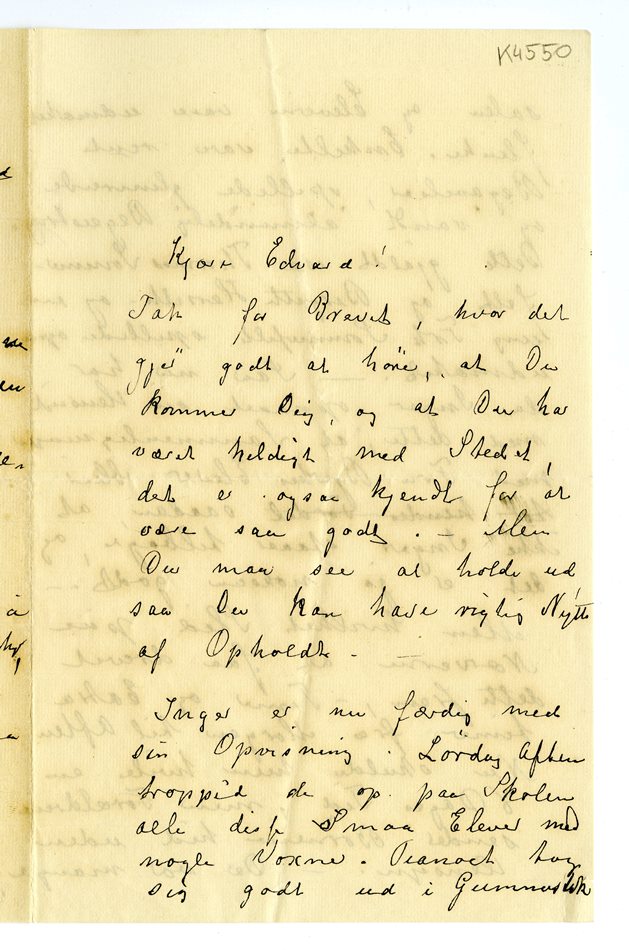 K4550
Kjære Edvard!
Tak for Brevet, hvor det
gjør godt at höre, at Du
kommer Dig, og at Du har
været heldigt med Stedet,
det er ogsaa kjendt for at
være saa godt. – Men
Du maa see at holde ud,
saa Du kan have rigtig Nytte
af Opholdt. –
Inger er nu færdig med
sin Opvisning. Lördag Aften
tropped de op paa Skolen
alle disse Smaa Elever med
nogle Voxne. Pianoet tog
sig godt ud i Gumnastik